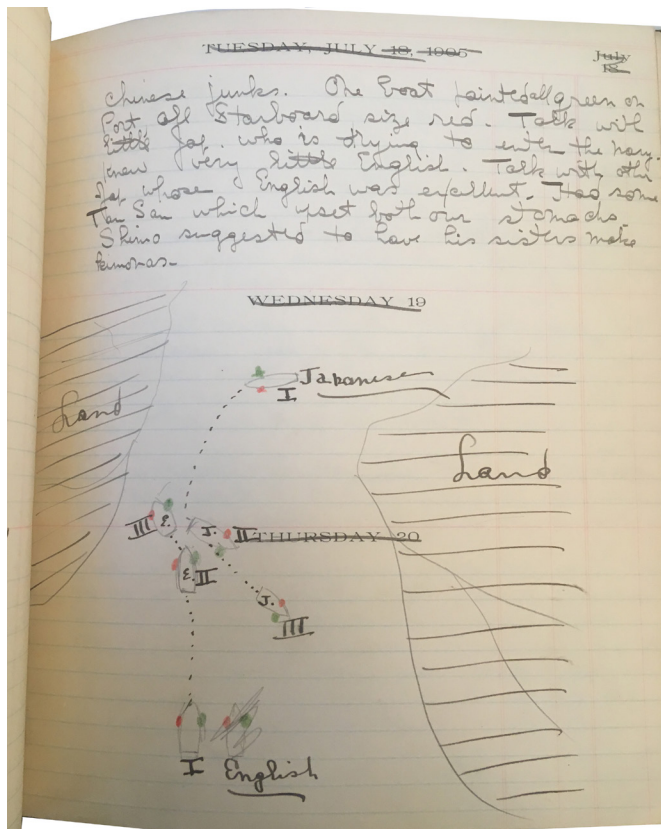 TUESDAY, JULY 18, 1905
July
18
Chinese junks. One boat painted all green on
Port all Starboard size red. Talk with
little Jap. who is trying to enter the navy.
knew very little English. Talk with other
Jap whose English was excellent. Had some
Tan San which upset both our stomachs.
Shimo suggested to have his sisters make
kimonas-
WEDNESDAY 19
Japanese
I
Land
Land
III
E.
J.
II
THURSDAY 20
E.
II
J.
III
I
English